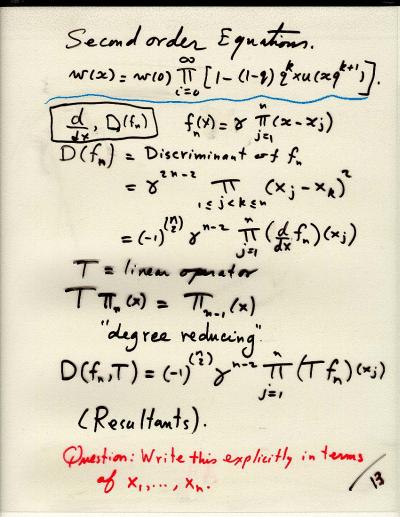 Second order Equations.
w(x) = w(0) ∞ ∏ i=0 [1 - (1-q) q^k x u(xq^{k+1})].
d/dx, D(f_n) f_n(x) = γ n ∏ j=1 (x - x_j)
D(f_n) = Discriminant of f_n
= γ^{2n-2} ∏ 1≤j<k≤n (x_j - x_k)^2
= (-1)^{(n 2)} γ^{n-2} n ∏ j=1 (d/dx f_n)(x_j)
T = linear operator
T π_n(x) = π_{n-1}(x)
"degree reducing"
D(f_n, T) = (-1)^{(n 2)} γ^{n-2} n ∏ j=1 (T f_n)(x_j)
(Resultants).
Question: Write this explicitly in terms
of x_1, ..., x_n.
/13